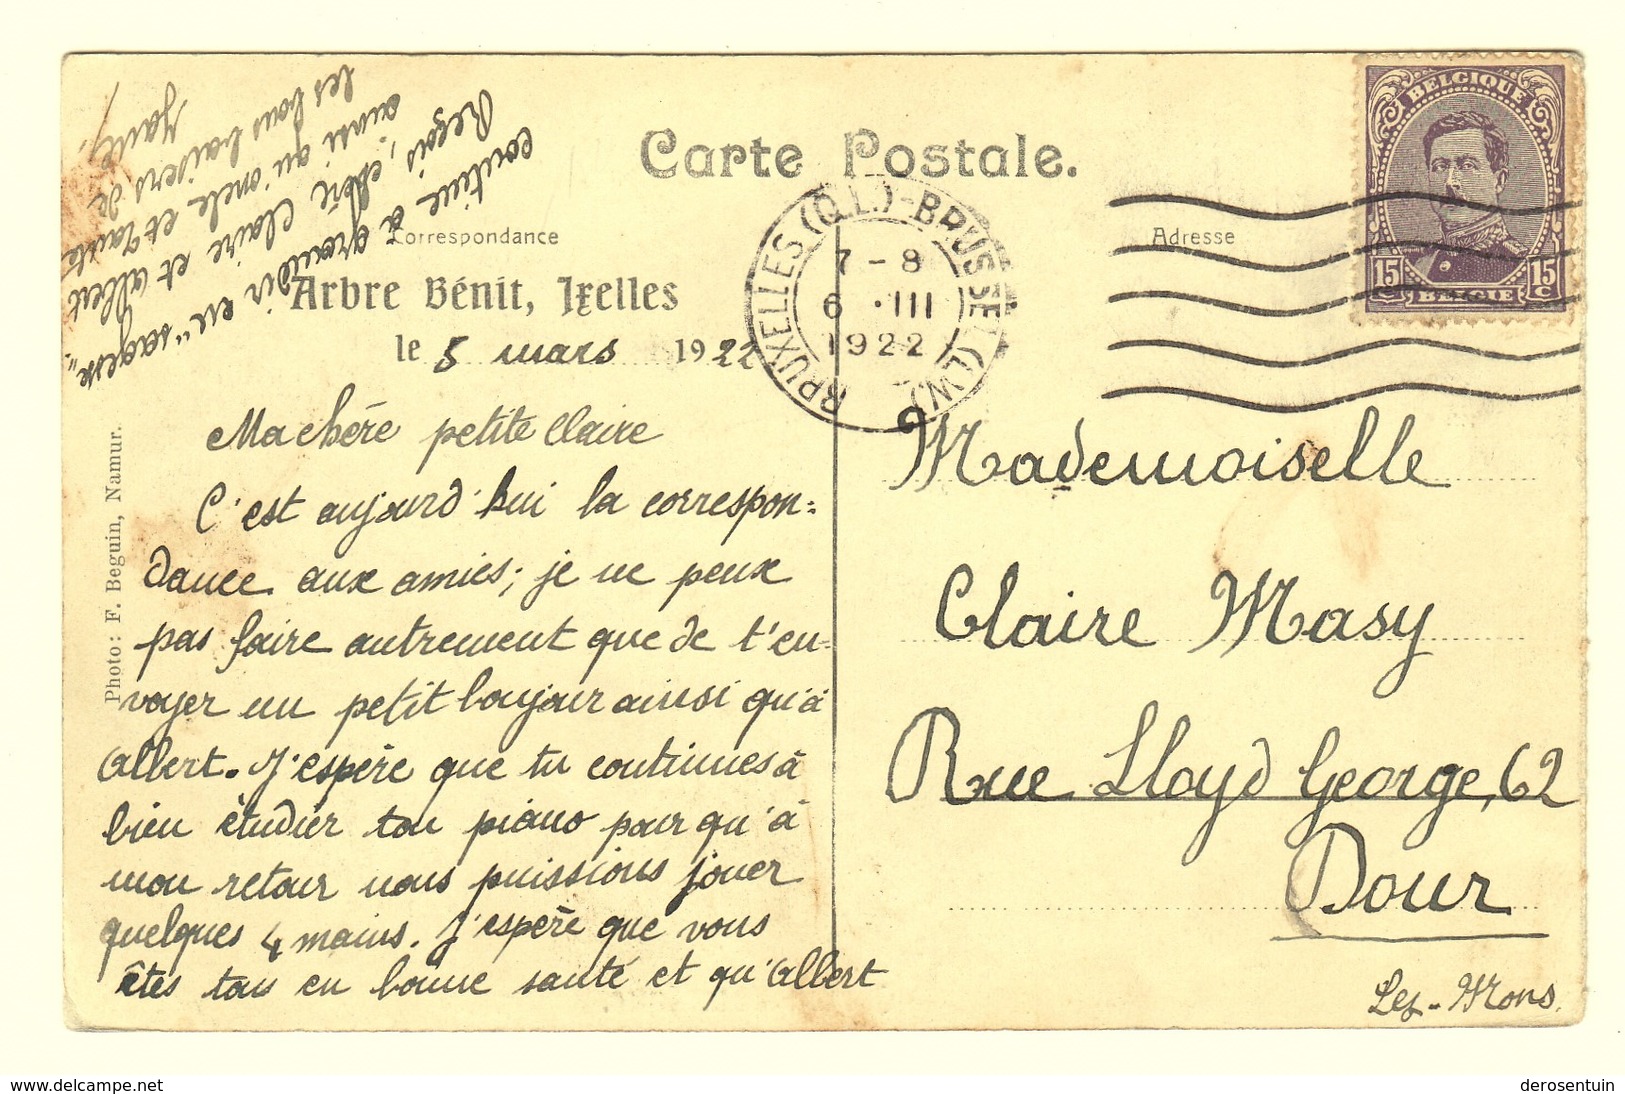 Carte Postale.
Correspondance
Adresse
Arbre Bénit, Ixelles
le 5 mars 1922
Ma chére petite Claire
C'est aujourd'hui la correspon=
dance aux amies; je ne peux
pas faire autrement que de t'en-
voyer un petit bonjour ainsi qu'à
Albert. J'espère que tu continues à
bien étudier ton piano pour qu'à
mon retour nous puissions jouer
quelques 4 mains. J'espère que vous
êtes tous en bonne santé et qu'Albert
continue à grandir en "sagesse"
Reçois, chère Claire et Albert
ainsi qu'oncle et Tante
les bons baisers de
Photo: F. Beguin, Namur.
BRUXELLES (Q.L.) - BRUSSEL (L.W.)
7 - 8
6 · III
1922
BELGIQUE
15 C
15 C
BELGIE
Mademoiselle
Claire Masy
Rue Lloyd George, 62
Dour
Lez-Mons.
delcampe.net
derosentuin